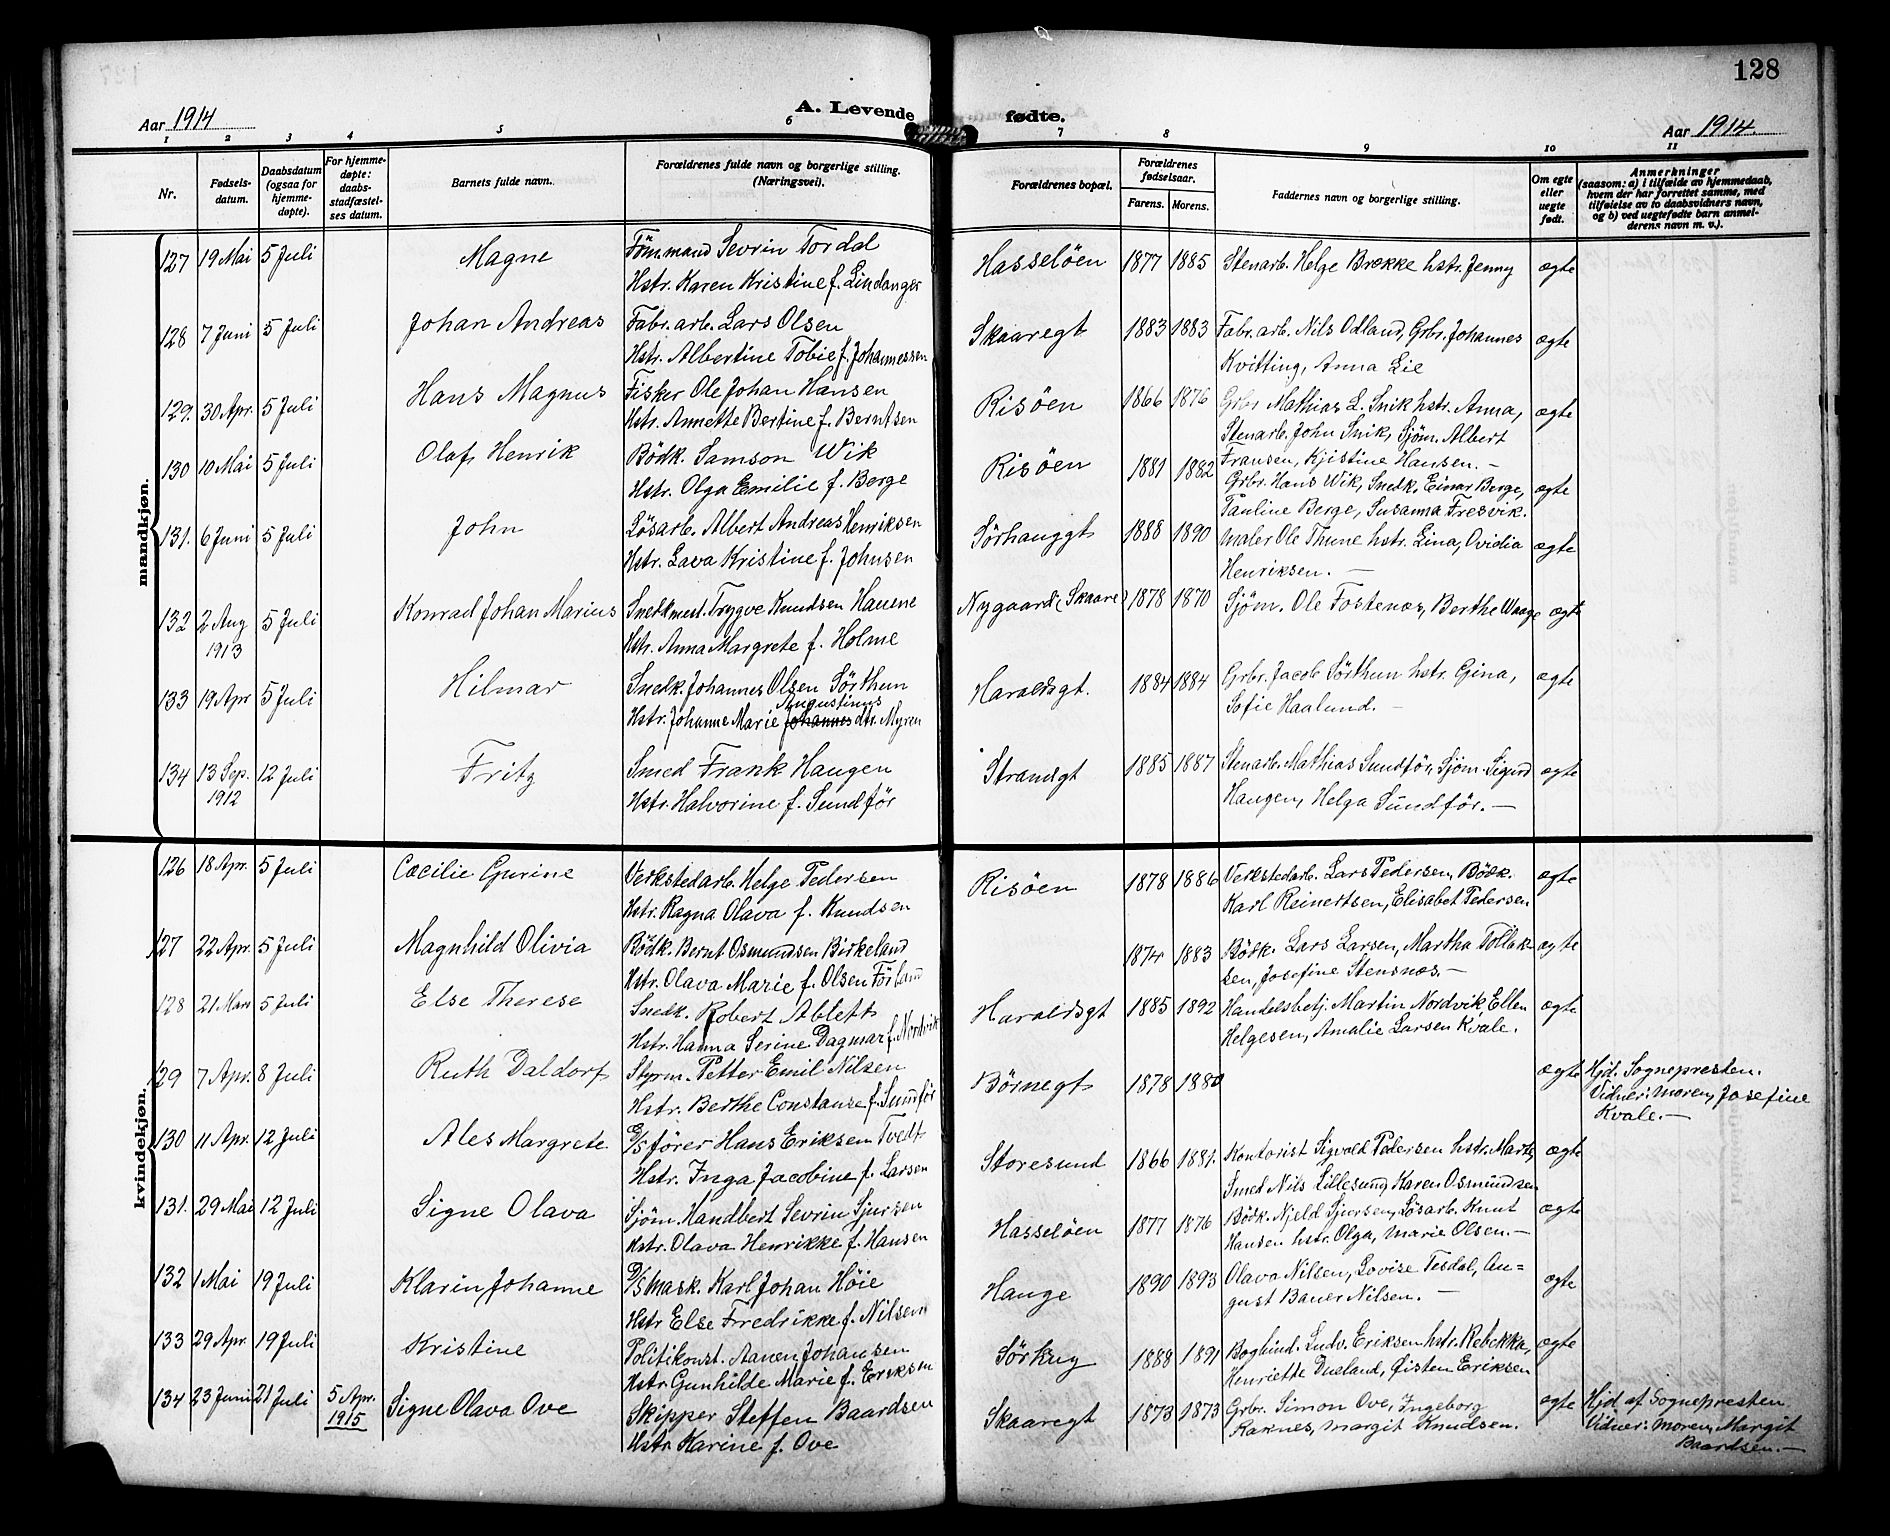 128
Aar 1914
A. Levende
fødte.
Aar 1914.
1 2 3 4 5 6 7 8 9 10 11
Nr.
Fødsels-
datum.
Daabsdatum
(ogsaa for
hjemme-
døpte).
For hjemme-
døpte:
daabs-
stadfæstel-
ses datum.
Barnets fulde navn.
Forældrenes fulde navn og borgerlige stilling.
(Næringsvei).
Forældrenes bopæl.
Forældrenes
fødselsaar.
Farens. Morens.
Faddernes navn og borgerlige stilling.
Om egte
eller
uegte
født.
Anmerkninger
(saasom: a) i tilfælde av hjemmedaab,
hvem der har forrettet samme, med
tilføielse av to daabsvidners navn,
og b) ved uegtefødte barn anmel-
derens navn m. v.).
mandkjøn.
127 19 Mai 5 Juli Magne Tömmand Sevrin Tordal Hasselöen 1877 1885 Stenarb. Helge Brække hstr. Jenny ægte
Hstr. Karen Kristine f. Lindanger
128 7 Juni 5 Juli Johan Andreas Fabr. arb. Lars Olsen Skaaregt 1883 1883 Fabr. arb. Nils Odland, Grbr. Johannes ægte
Hstr. Albertine Tobie f. Johannessen Kvitting, Anna Lie
129. 30 Apr. 5 Juli Hans Magnus Fisker Ole Johan Hansen Risöen 1866 1876 Grbr Mathias L. Snik hstr. Anna, ægte
Hstr. Annette Bertine f. Berntsen Stenarb. John Snik, Sjöm. Albert
Fransen, Kjistine Hansen. -
130 10 Mai 5 Juli Olaf Henrik Bödk. Samson Wik Risöen 1881 1882 Grbr. Hans Wik, Snedk. Einar Berge, ægte
Hstr. Olga Emilie f. Berge Pauline Berge, Susanna Fresvik.
131. 6 Juni 5 Juli John Lösarb. Albert Andreas Henriksen Sörhauggt 1888 1890 Maler Ole Thune hstr. Lina, Ovidia ægte
Hstr. Lava Kristine f. Johnsen Henriksen. -
132 2 Aug 5 Juli Konrad Johan Marius Snedkmest. Trygve Knudsen Hauene Nygaard (Skaare) 1878 1870 Sjöm. Ole Fostenæs, Berthe Waage ægte
1913 Hstr. Anna Margrete f. Holme
133 19 Apr 5 Juli Hilmar Snedk. Johannes Olsen Sörthun Haraldsgt. 1884 1884 Grbr. Jacob Sörthun hstr. Gina, ægte
Augustinus
Hstr. Johanne Marie Johannes dtr. Myren Sofie Haaland. -
134 13 Sep. 12 Juli Fritz Smed Frank Haugen Strandgt 1885 1887 Stenarb. Mathias Sundför, Sjöm. Sigurd ægte
1912 Hstr. Halvorine f. Sundför Haugen, Helga Sundför. -
kvindekjøn.
126 18 Apr. 5 Juli Cæcilie Gurine Verkstedarb. Helge Pedersen Risöen 1878 1886 Verkstedarb. Lars Pedersen, Bödk. ægte
Hstr. Ragna Olava f. Knudsen Karl Reinertsen, Elisabet Pedersen
127 22 Apr. 5 Juli Magnhild Olivia Bödk. Bernt Osmundsen Birkeland 1874 1883 Bödk. Lars Larsen, Martha Tollak- ægte
Hstr. Olava Marie f. Olsen Förland sen, Josefine Stensnæs. -
128 21 Mars 5 Juli Else Therese Snedk. Robert Ablett Haraldsgt 1885 1892 Handelsbetj. Martin Nordvik, Ellen ægte
Hstr. Hanna Serine Dagmar f. Nordvik Helgesen, Amalie Larsen Kvale.
129 7 Apr. 8 Juli Ruth Daldorf Styrm. Petter Emil Nilsen Börnegt 1878 1880 ægte Hjd. Sognepresten.
Hstr. Berthe Constanse f. Sundför Vidner: Moren, Josefine
Kvale. -
130 11 Apr. 12 Juli Ales Margrete D/S förer Hans Eriksen Tvedt Storesund 1866 1881. Kontorist Sigvald Pedersen hstr. Marta, ægte
Hstr. Inga Jacobine f. Larsen Smed Nils Lillesund, Karen Osmundsen
131. 29 Mai 12 Juli Signe Olava Sjöm. Handbert Sevrin Sjursen Hasselöen 1877 1876 Bödk. Njeld Sjursen, Lösarb. Knut ægte
Hstr. Olava Henrikke f. Hansen Hansen hstr. Olga, Marie Olsen. -
132 1 Mai 19 Juli Klarin Johanne D/S Mask. Karl Johan Höie Hauge 1890 1893 Olava Nilsen, Lovise Tesdal, Au= ægte
Hstr Else Fredrikke f. Nilsen gust Bauer Nilsen. -
133 29 Apr. 19 Juli Kristine Politikonst. Aanen Johansen Sörhug 1888 1891 Bogbind. Ludv. Eriksen hstr. Rebekka, ægte
Hstr Gunhilde Marie f. Eriksen Henriette Dueland, Øisten Eriksen
134 23 Juni 21 Juli 5 Apr. 1915 Signe Olava Ove Skipper Steffen Baardsen Skaaregt 1873 1873 Grbr. Simon Ove, Ingeborg ægte Hjd af Sognepresten.
Hstr Karine f. Ove Raknes, Margit Knudsen. Vidner: Moren, Margit
Baardsen. -